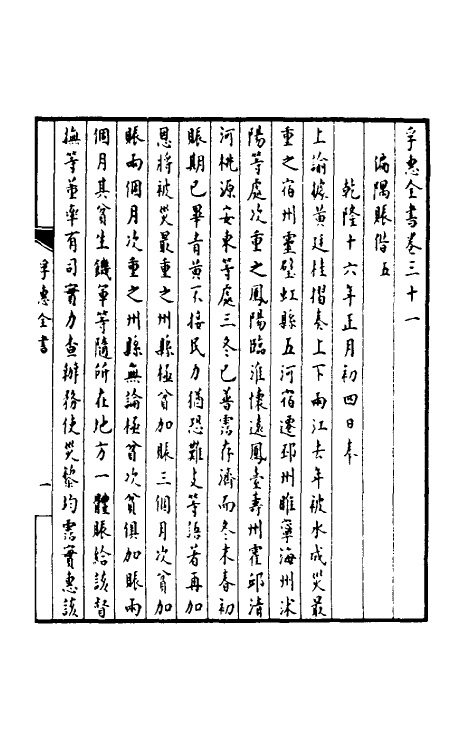 孚惠全書卷三十一
偏隅賑借五
乾隆十六年正月初四日奉
上諭據黃廷桂摺奏上下兩江去年被水成災最
重之宿州靈璧虹縣五河宿遷邳州睢寧海州沭
陽等處次重之鳳陽臨淮懷遠鳳臺壽州霍邱清
河桃源安東等處三冬已普霑存濟而冬末春初
賑期已畢青黃不接民力猶恐難支等語著再加
恩將被災最重之州縣極貧加賑三個月次貧加
賑兩個月次重之州縣無論極貧次貧俱加賑兩
個月其貧生饑軍等隨所在地方一體賑給該督
撫等董率有司實力查辦務使災黎均霑實惠該
孚惠全書
一